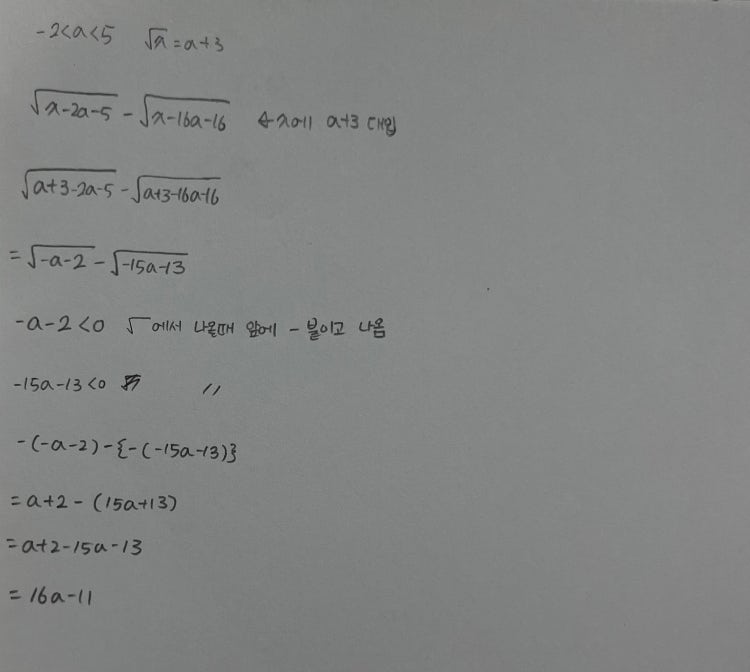 -2<a<5 √x=a+3
√x-2a-5 - √x-16a-16 ←x에 a+3 대입
√a+3-2a-5 - √a+3-16a-16
= √-a-2 - √-15a-13
-a-2<0 √에서 나올때 앞에 - 붙이고 나옴
-15a-13<0 〃
-(-a-2)-{-(-15a-13)}
= a+2-(15a+13)
= a+2-15a-13
= 16a-11